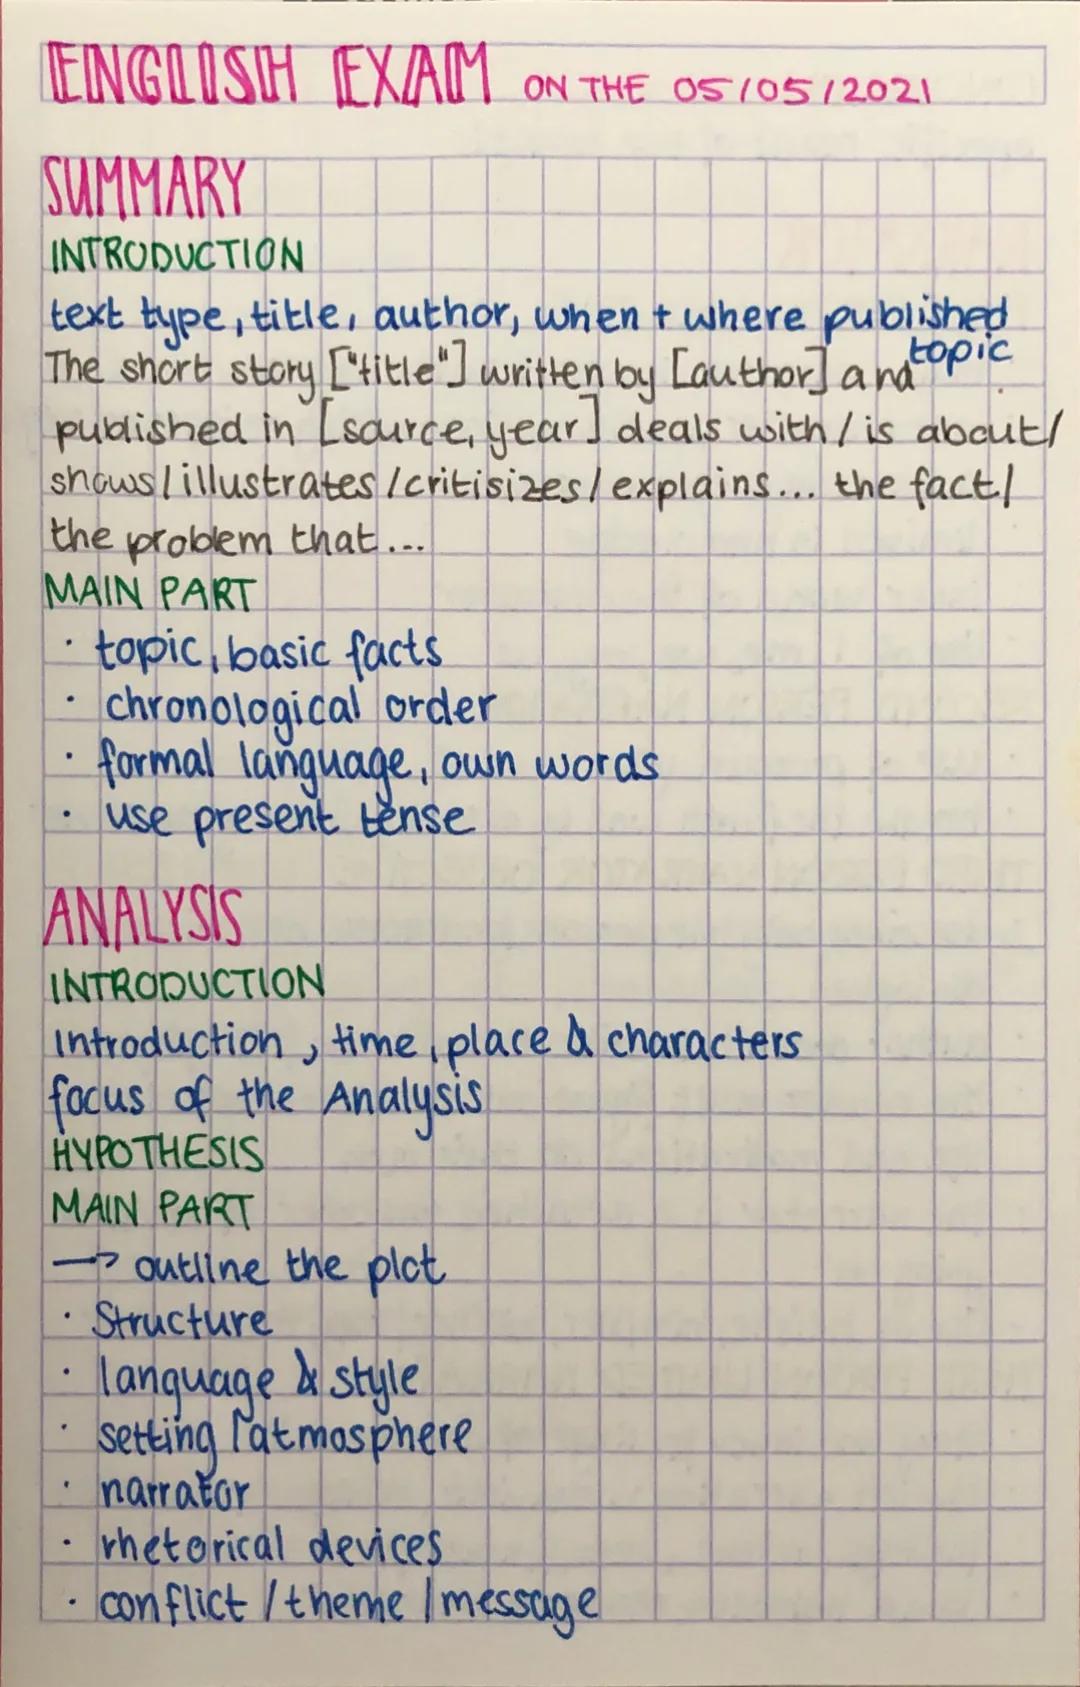 ENGLISH EXAM ON THE 05/05/2021
SUMMARY
INTRODUCTION
text type, title, author, when + where published
topic
The short story ["title"] written by [author] and
published in [source, year] deals with / is about/
shows/illustrates/critisizes/explains... the fact/
the problem that...
MAIN PART
· topic, basic facts
· chronological order
· formal language, own words
· use present tense
ANALYSIS
INTRODUCTION
Introduction, time, place & characters
focus of the Analysis
HYPOTHESIS
MAIN PART
—> outline the plot
· Structure
· language & style
· setting / atmosphere
· narrator
· rhetorical devices
· conflict / theme / message